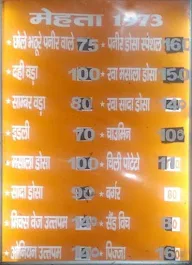 मेहता 1973
छोले भटूरे पनीर वाले 75 पनीर डोसा स्पेशल 160
दही वड़ा 100 रवा मसाला डोसा 150
साम्बर वड़ा 80 रवा सादा डोसा
इडली 70 चाउमिन 100
मसाला डोसा 100 चिली पोटेटो
सादा डोसा 90 बर्गर
मिक्स वेज उत्तपम सैंड विच 80
ओनियन उत्तपम पिज्जा 160